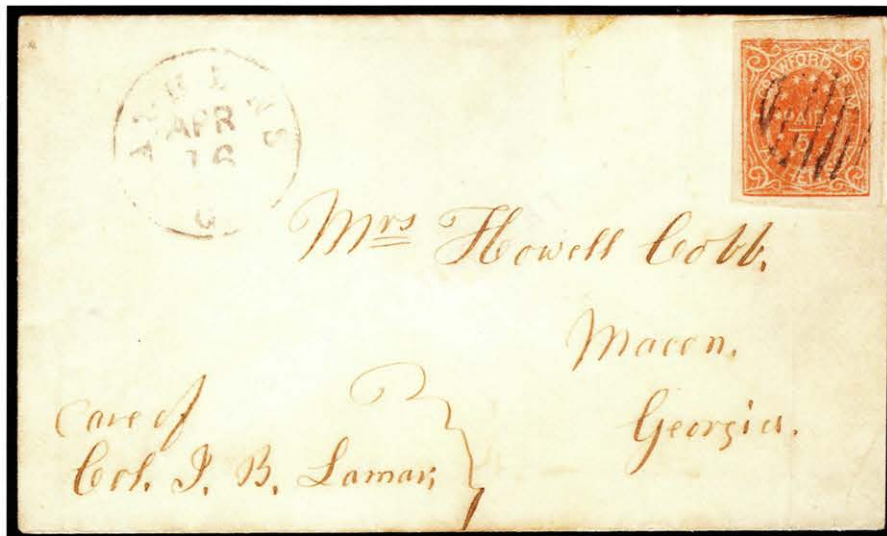 ATHENS
APR
16
G
CRAWFORD, P.M.
PAID
5
ATHENS
Mrs Howell Cobb.
Macon.
Georgia.
care of
Col. J. B. Lamar;